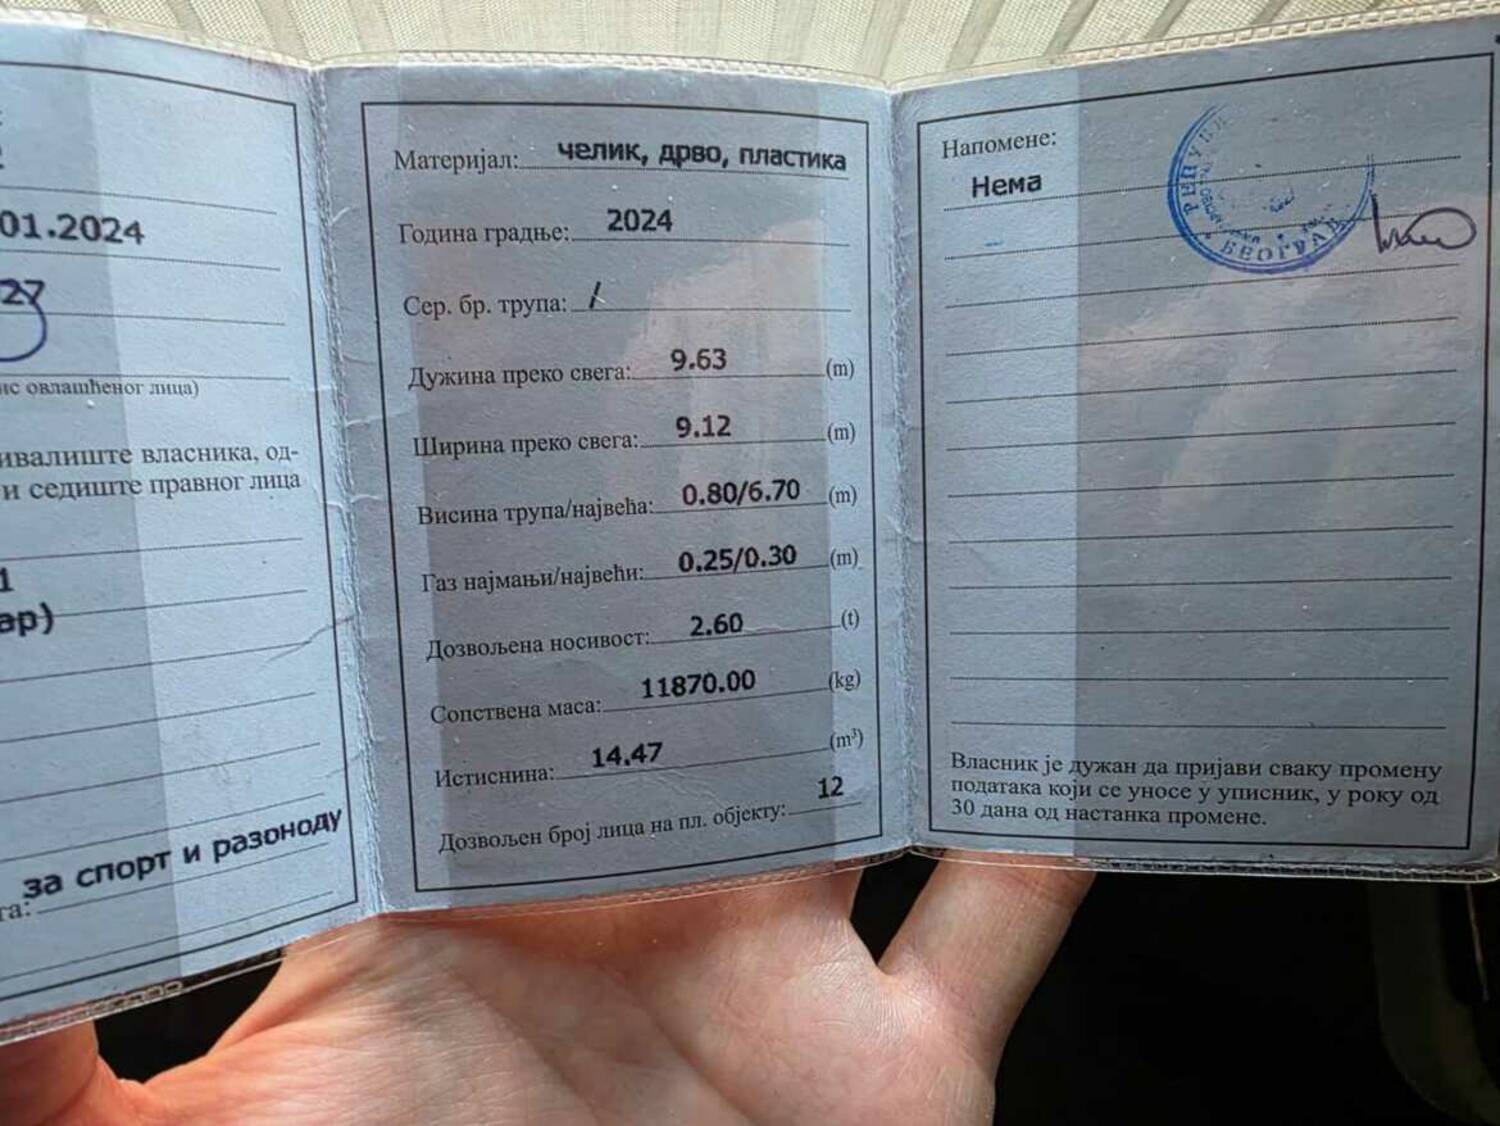 01.2024
27
овлашћеног лица)
власника, од-
и седиште правног лица
1
за спорт и разоноду
Материјал: челик, дрво, пластика
Година градње: 2024
Сер. бр. трупа: /
Дужина преко свега: 9.63 (m)
Ширина преко свега: 9.12 (m)
Висина трупа/највећа: 0.80/6.70 (m)
Газ најмањи/највећи: 0.25/0.30 (m)
Дозвољена носивост: 2.60 (t)
Сопствена маса: 11870.00 (kg)
Истиснина: 14.47 (m³)
Дозвољен број лица на пл. објекту: 12
Напомене:
Нема
БЕОГРАД
Власник је дужан да пријави сваку промену
података који се уносе у уписник, у року од
30 дана од настанка промене.